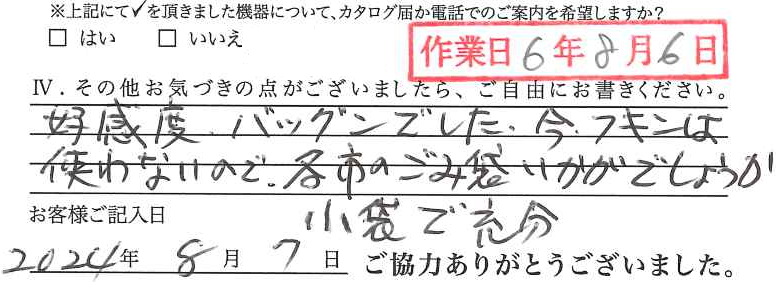 ※上記にて✓を頂きました機器について、カタログ届か電話でのご案内を希望しますか？
□ はい □ いいえ
作業日 6年8月6日
Ⅳ．その他お気づきの点がございましたら、ご自由にお書きください。
好感度、バッグンでした、今、フキンは
使わないので、各市のごみ袋いかがでしょうか
小袋で充分
お客様ご記入日
2024年 8月 7日 ご協力ありがとうございました。